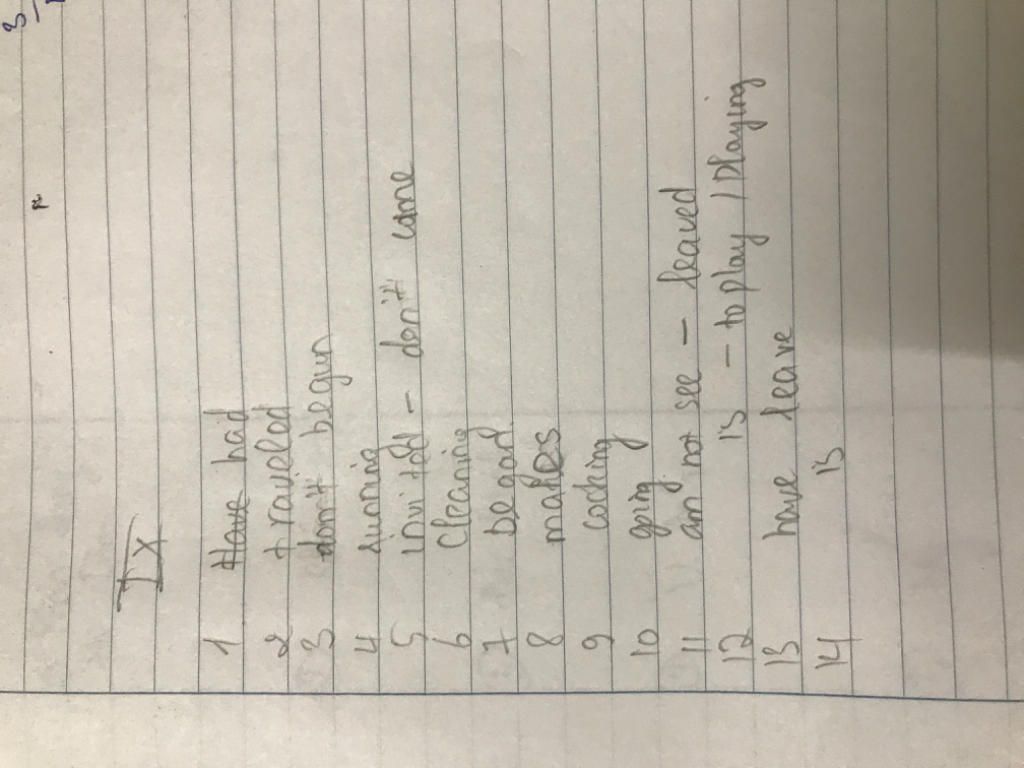 IX
1 Have had
2 traveled
3 don't begun
4 running
5 invited - don't came
6 Cleaning
7 begad
8 makes
9 cooking
10 going
11 am not see - leaved
12 is - to play / playing
13 have leave
14 is